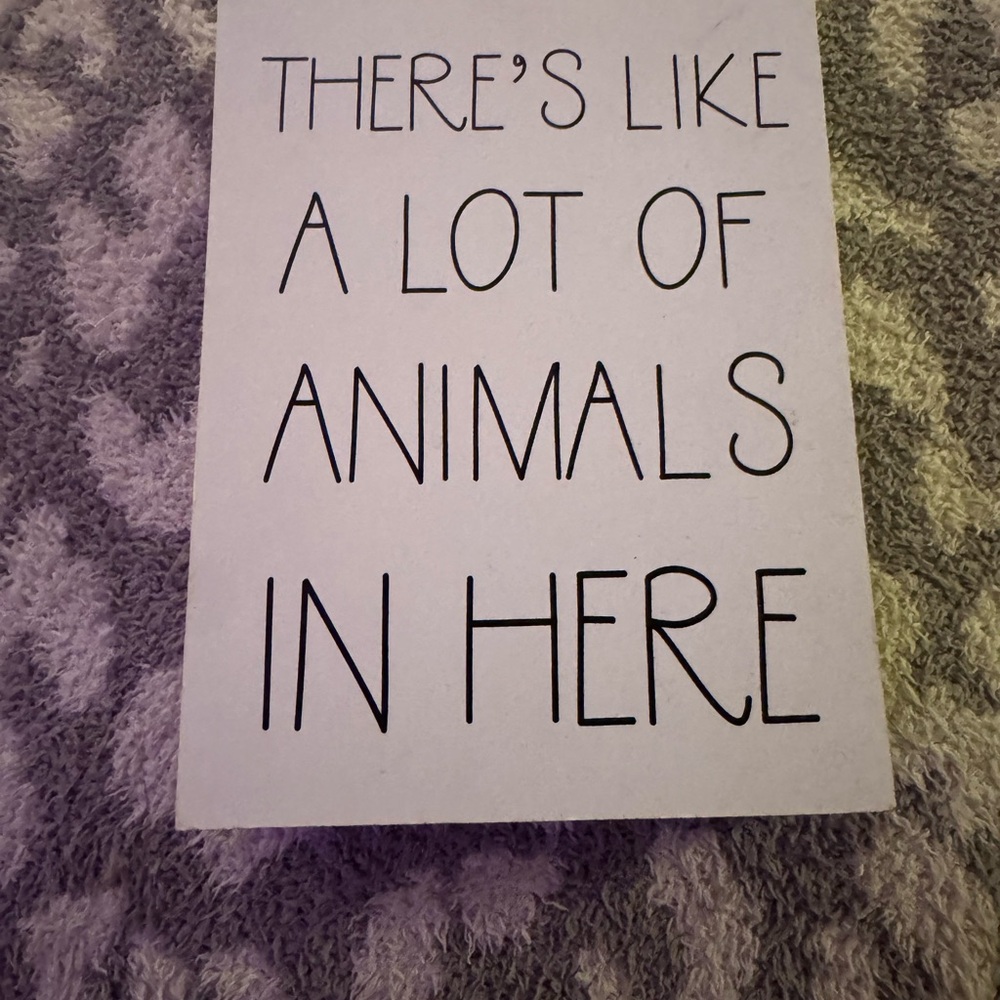 THERE'S LIKE
A LOT OF
ANIMALS
IN HERE